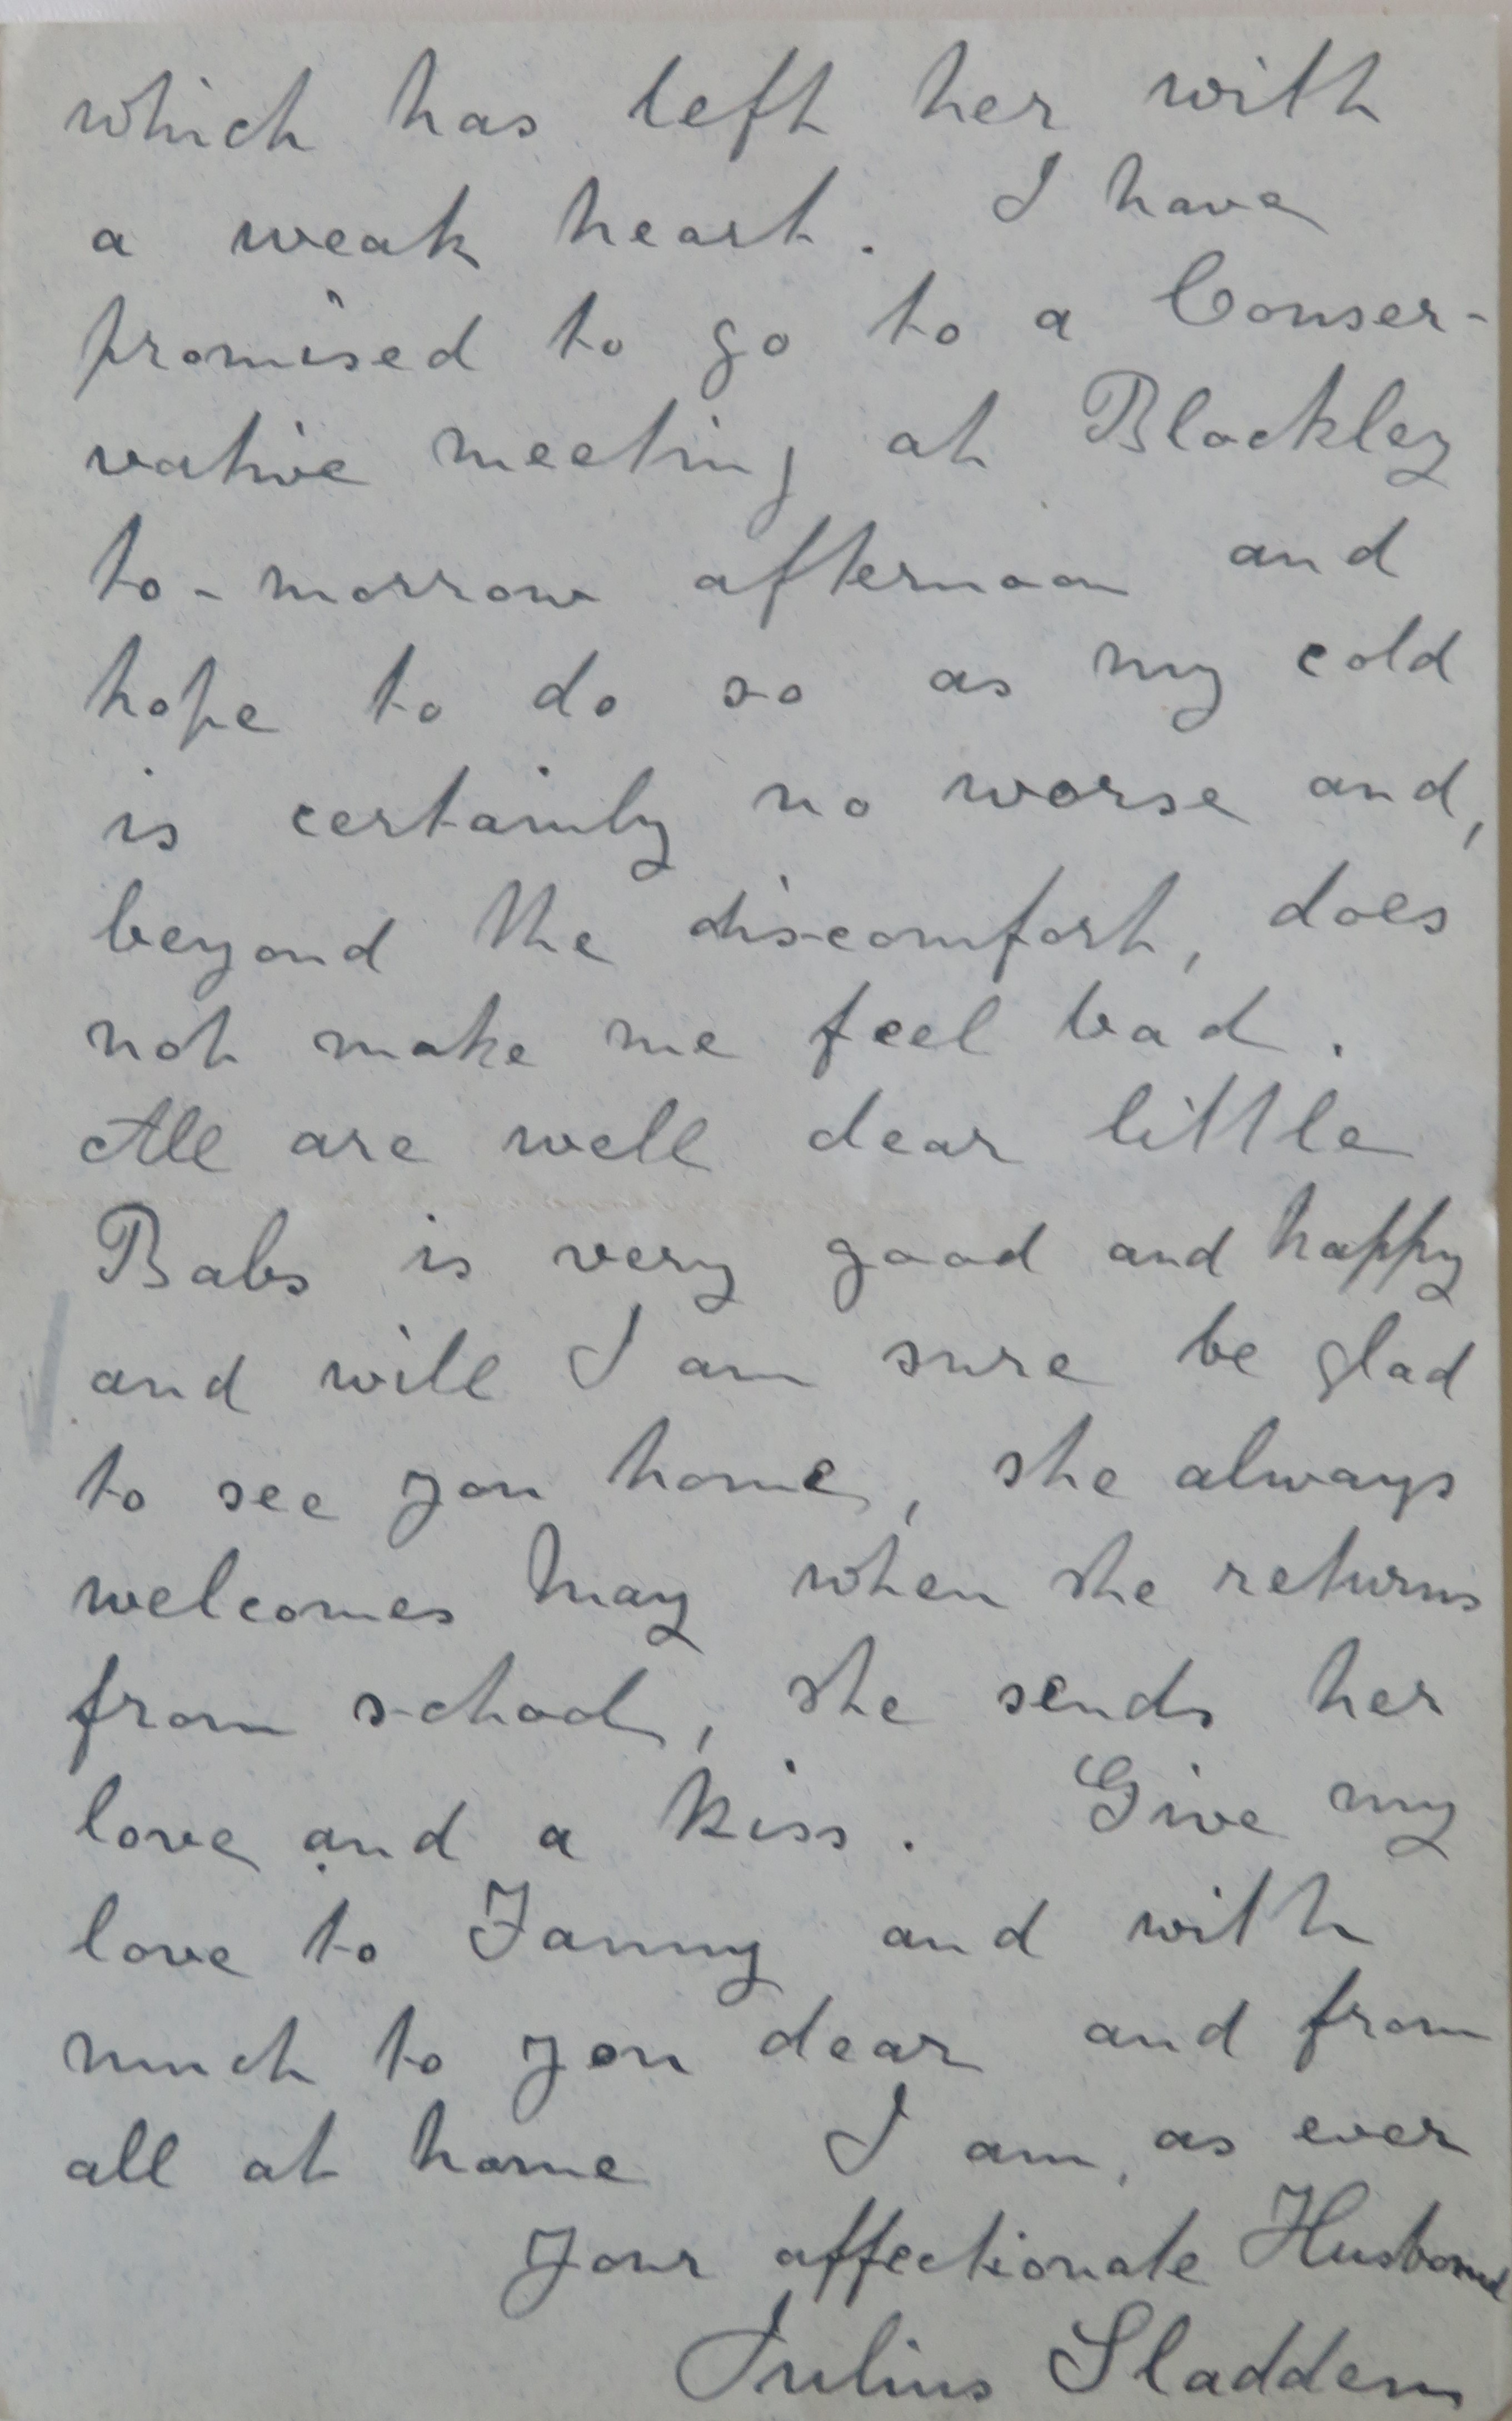 which has left her with
a weak heart. I have
promised to go to a Conser-
vative meeting at Blockley
to-morrow afternoon and
hope to do so as my cold
is certainly no worse and,
beyond the discomfort, does
not make me feel bad.
All are well dear little
Babs is very good and happy
and will I am sure be glad
to see you home, she always
welcomes May when she returns
from school, she sends her
love and a kiss. Give my
love to Fanny and with
much to you dear and from
all at home I am, as ever
your affectionate Husband
Julius Sladden